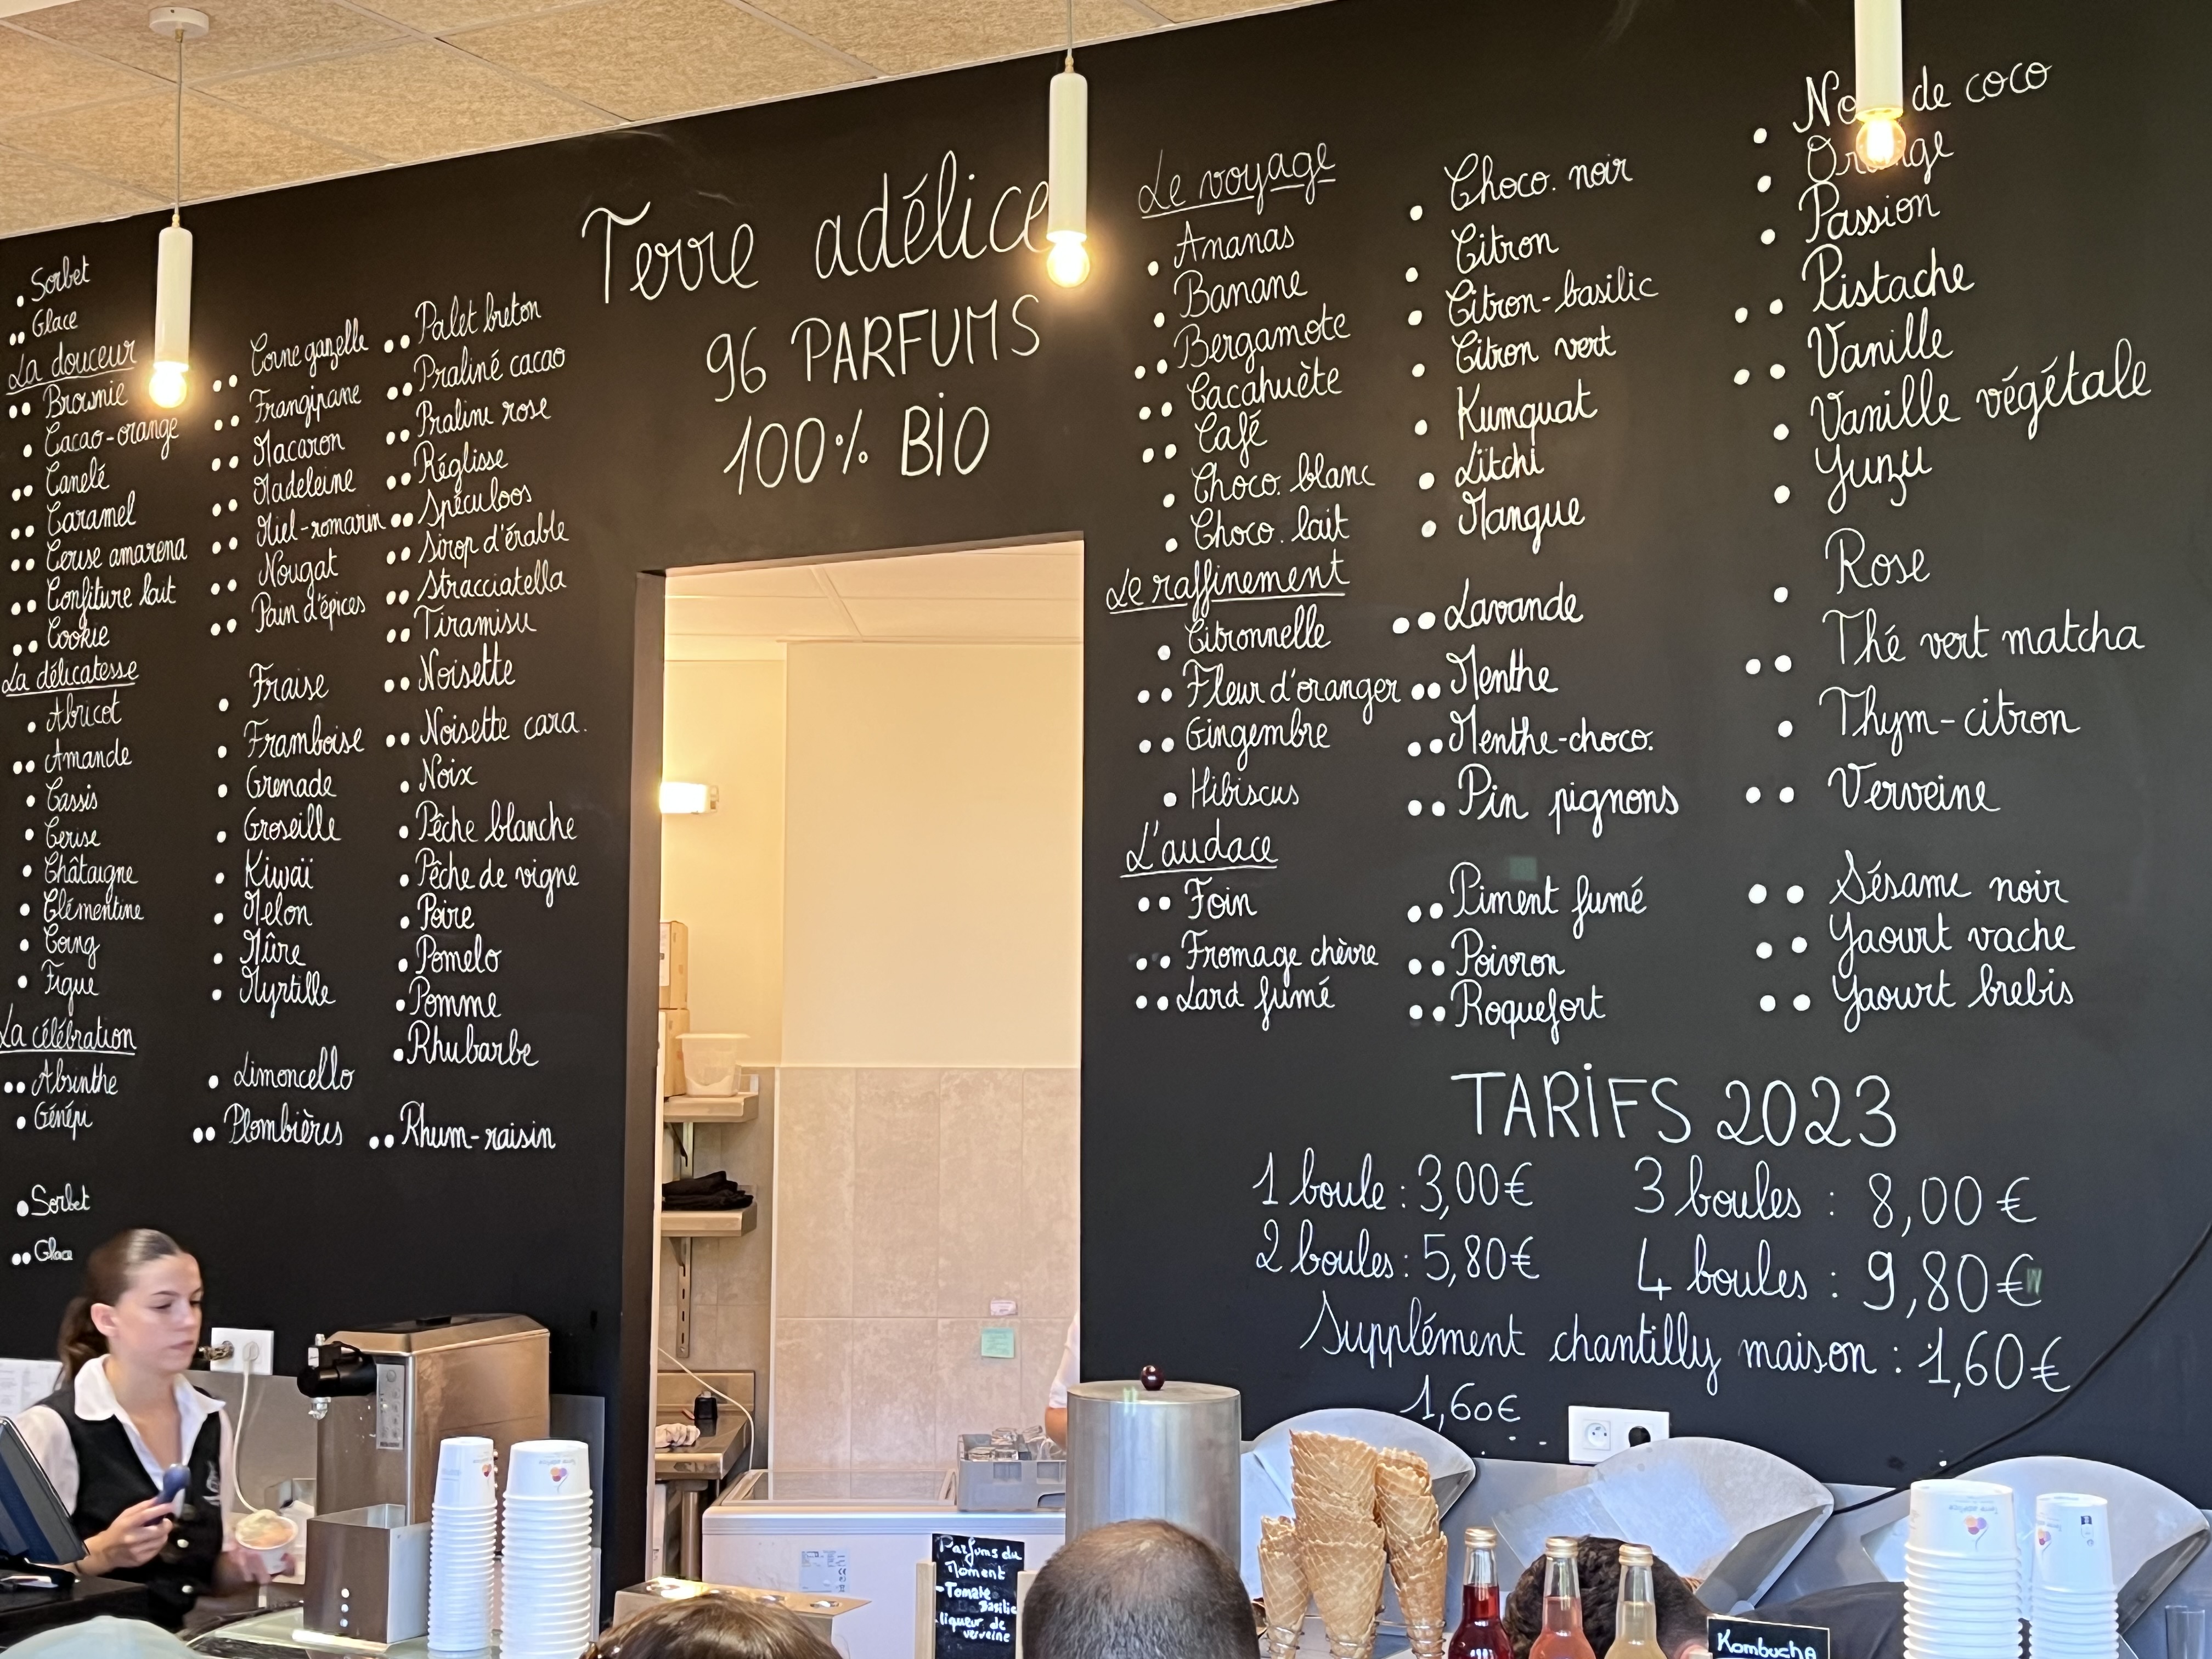 Sorbet
Glace
La douceur
Brownie
Cacao-orange
Canelé
Caramel
Cerise amarena
Confiture lait
Cookie
Corne gazelle
Frangipane
Macaron
Madeleine
Miel-romarin
Nougat
Pain d'épices
Palet breton
Praliné cacao
Praline rose
Réglisse
Spéculoos
Sirop d'érable
Stracciatella
Tiramisu
La délicatesse
Abricot
Amande
Cassis
Cerise
Châtaigne
Clémentine
Coing
Figue
Fraise
Framboise
Grenade
Groseille
Kiwaï
Melon
Mûre
Myrtille
Noisette
Noisette cara.
Noix
Pêche blanche
Pêche de vigne
Poire
Pomelo
Pomme
Rhubarbe
La célébration
Absinthe
Génépi
Limoncello
Plombières
Rhum-raisin
Sorbet
Glace
Terre adélice
96 PARFUMS
100% BIO
Le voyage
Ananas
Banane
Bergamote
Cacahuète
Café
Choco. blanc
Choco. lait
Choco. noir
Citron
Citron-basilic
Citron vert
Kumquat
Litchi
Mangue
de coco
Orange
Passion
Pistache
Vanille
Vanille végétale
Yuzu
Le raffinement
Citronnelle
Fleur d'oranger
Gingembre
Hibiscus
Lavande
Menthe
Menthe-choco.
Pin pignons
Rose
Thé vert matcha
Thym-citron
Verveine
L'audace
Foin
Fromage chèvre
Lard fumé
Piment fumé
Poivron
Roquefort
Sésame noir
Yaourt vache
Yaourt brebis
TARIFS 2023
1 boule : 3,00€
2 boules : 5,80€
3 boules : 8,00€
4 boules : 9,80€
Supplément chantilly maison : 1,60€
1,60€
Parfums du
Moment
-Tomate
Basilic
liqueur de
verveine
Kombucha